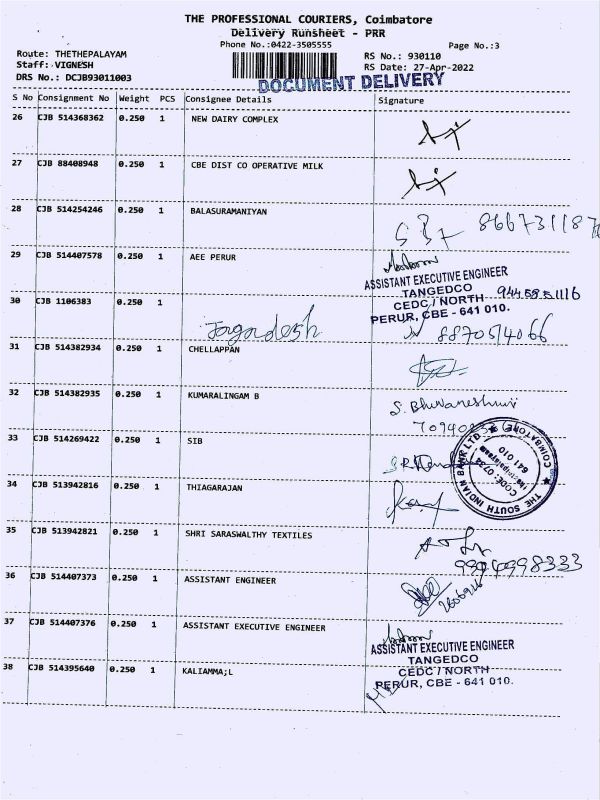 THE PROFESSIONAL COURIERS, Coimbatore
Delivery Runsheet - PRR
Phone No.:0422-3505555
Page No.:3
Route: THETHEPALAYAM
RS No.: 930110
Staff: VIGNESH
RS Date: 27-Apr-2022
DRS No.: DCJB93011003
DOCUMENT DELIVERY
S No Consignment No Weight PCS Consignee Details Signature
26 CJB 514368362 0.250 1 NEW DAIRY COMPLEX
27 CJB 88408948 0.250 1 CBE DIST CO OPERATIVE MILK
28 CJB 514254246 0.250 1 BALASURAMANIYAN
866731187
29 CJB 514407578 0.250 1 AEE PERUR
ASSISTANT EXECUTIVE ENGINEER
TANGEDCO
CEDC / NORTH
PERUR, CBE - 641 010.
30 CJB 1106383 0.250 1
Jagadesh
31 CJB 514382934 0.250 1 CHELLAPPAN
32 CJB 514382935 0.250 1 KUMARALINGAM B
S. Bhuvaneshwari
33 CJB 514269422 0.250 1 SIB
THE SOUTH INDIAN BANK LTD
COIMBATORE
CODE: 0723
641 010
34 CJB 513942816 0.250 1 THIAGARAJAN
35 CJB 513942821 0.250 1 SHRI SARASWALTHY TEXTILES
36 CJB 514407373 0.250 1 ASSISTANT ENGINEER
37 CJB 514407376 0.250 1 ASSISTANT EXECUTIVE ENGINEER
ASSISTANT EXECUTIVE ENGINEER
TANGEDCO
CEDC / NORTH
PERUR, CBE - 641 010.
38 CJB 514395640 0.250 1 KALIAMMA;L